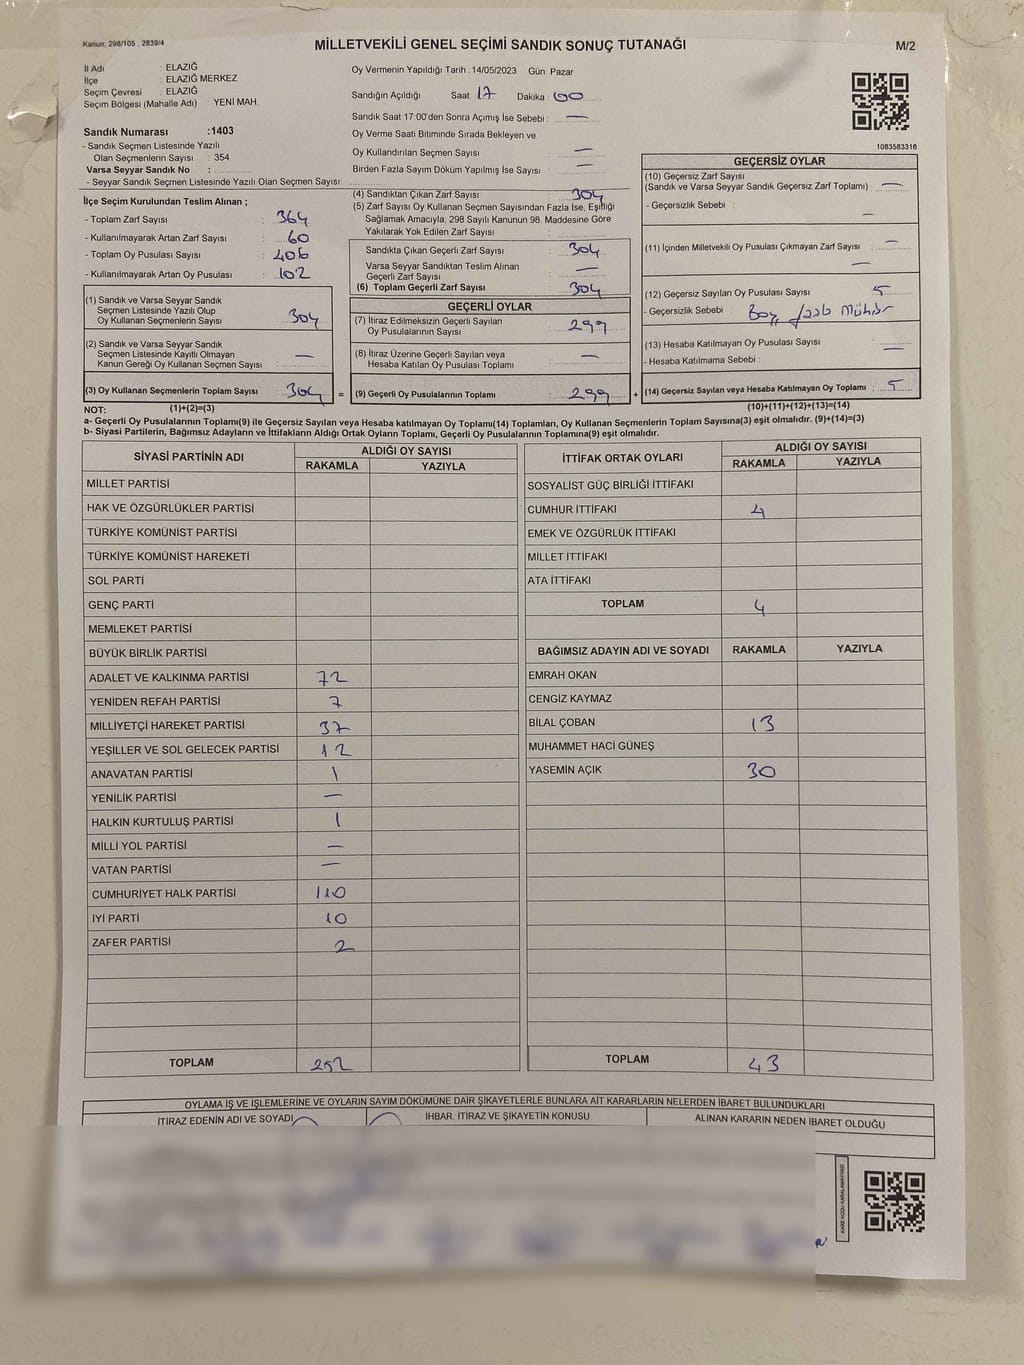 Kanun, 298/105 , 2839/4
MİLLETVEKİLİ GENEL SEÇİMİ SANDIK SONUÇ TUTANAĞI
M/2
İl Adı : ELAZIĞ
İlçe : ELAZIĞ MERKEZ
Seçim Çevresi : ELAZIĞ
Seçim Bölgesi (Mahalle Adı) : YENİ MAH.
Sandık Numarası :1403
- Sandık Seçmen Listesinde Yazılı
Olan Seçmenlerin Sayısı : 354
Varsa Seyyar Sandık No :
- Seyyar Sandık Seçmen Listesinde Yazılı Olan Seçmen Sayısı:
Oy Vermenin Yapıldığı Tarih :14/05/2023 Gün: Pazar
Sandığın Açıldığı Saat: 17 Dakika: 00
Sandık Saat 17:00'den Sonra Açımış İse Sebebi : —
Oy Verme Saati Bitiminde Sırada Bekleyen ve
Oy Kullandırılan Seçmen Sayısı : —
Birden Fazla Sayım Döküm Yapılmış İse Sayısı : —
1083583316
İlçe Seçim Kurulundan Teslim Alınan ;
- Toplam Zarf Sayısı : 364
- Kullanılmayarak Artan Zarf Sayısı : 60
- Toplam Oy Pusulası Sayısı : 406
- Kullanılmayarak Artan Oy Pusulası : 102
(1) Sandık ve Varsa Seyyar Sandık
Seçmen Listesinde Yazılı Olup
Oy Kullanan Seçmenlerin Sayısı : 304
(2) Sandık ve Varsa Seyyar Sandık
Seçmen Listesinde Kayıtlı Olmayan
Kanun Gereği Oy Kullanan Seçmen Sayısı : —
(3) Oy Kullanan Seçmenlerin Toplam Sayısı : 304 =
(1)+(2)=(3)
(4) Sandıktan Çıkan Zarf Sayısı : 304
(5) Zarf Sayısı Oy Kullanan Seçmen Sayısından Fazla İse, Eşitliği
Sağlamak Amacıyla; 298 Sayılı Kanunun 98. Maddesine Göre
Yakılarak Yok Edilen Zarf Sayısı :
Sandıkta Çıkan Geçerli Zarf Sayısı : 304
Varsa Seyyar Sandıktan Teslim Alınan
Geçerli Zarf Sayısı : —
(6) Toplam Geçerli Zarf Sayısı : 304
GEÇERLİ OYLAR
(7) İtiraz Edilmeksizin Geçerli Sayılan
Oy Pusulalarının Sayısı : 299
(8) İtiraz Üzerine Geçerli Sayılan veya
Hesaba Katılan Oy Pusulası Toplamı : —
(9) Geçerli Oy Pusulalarının Toplamı : 299 +
GEÇERSİZ OYLAR
(10) Geçersiz Zarf Sayısı
(Sandık ve Varsa Seyyar Sandık Geçersiz Zarf Toplamı) : —
- Geçersizlik Sebebi : —
(11) İçinden Milletvekili Oy Pusulası Çıkmayan Zarf Sayısı : —
—
(12) Geçersiz Sayılan Oy Pusulası Sayısı : 5
- Geçersizlik Sebebi : Boş, fazla Mühür
(13) Hesaba Katılmayan Oy Pusulası Sayısı : —
- Hesaba Katılmama Sebebi :
(14) Geçersiz Sayılan veya Hesaba Katılmayan Oy Toplamı : 5
(10)+(11)+(12)+(13)=(14)
NOT:
a- Geçerli Oy Pusulalarının Toplamı(9) ile Geçersiz Sayılan veya Hesaba katılmayan Oy Toplamı(14) Toplamları, Oy Kullanan Seçmenlerin Toplam Sayısına(3) eşit olmalıdır. (9)+(14)=(3)
b- Siyasi Partilerin, Bağımsız Adayların ve İttifakların Aldığı Ortak Oyların Toplamı, Geçerli Oy Pusulalarının Toplamına(9) eşit olmalıdır.
SİYASİ PARTİNİN ADI ALDIĞI OY SAYISI
RAKAMLA YAZIYLA
MİLLET PARTİSİ
HAK VE ÖZGÜRLÜKLER PARTİSİ
TÜRKİYE KOMÜNİST PARTİSİ
TÜRKİYE KOMÜNİST HAREKETİ
SOL PARTİ
GENÇ PARTİ
MEMLEKET PARTİSİ
BÜYÜK BİRLİK PARTİSİ
ADALET VE KALKINMA PARTİSİ 72
YENİDEN REFAH PARTİSİ 7
MİLLİYETÇİ HAREKET PARTİSİ 37
YEŞİLLER VE SOL GELECEK PARTİSİ 12
ANAVATAN PARTİSİ 1
YENİLİK PARTİSİ —
HALKIN KURTULUŞ PARTİSİ 1
MİLLİ YOL PARTİSİ —
VATAN PARTİSİ —
CUMHURİYET HALK PARTİSİ 110
İYİ PARTİ 10
ZAFER PARTİSİ 2
TOPLAM 252
İTTİFAK ORTAK OYLARI ALDIĞI OY SAYISI
RAKAMLA YAZIYLA
SOSYALİST GÜÇ BİRLİĞİ İTTİFAKI
CUMHUR İTTİFAKI 4
EMEK VE ÖZGÜRLÜK İTTİFAKI
MİLLET İTTİFAKI
ATA İTTİFAKI
TOPLAM 4
BAĞIMSIZ ADAYIN ADI VE SOYADI RAKAMLA YAZIYLA
EMRAH OKAN
CENGİZ KAYMAZ
BİLAL ÇOBAN 13
MUHAMMET HACİ GÜNEŞ
YASEMİN AÇIK 30
TOPLAM 43
OYLAMA İŞ VE İŞLEMLERİNE VE OYLARIN SAYIM DÖKÜMÜNE DAİR ŞİKAYETLERLE BUNLARA AİT KARARLARIN NELERDEN İBARET BULUNDUKLARI
İTİRAZ EDENİN ADI VE SOYADI İHBAR, İTİRAZ VE ŞİKAYETİN KONUSU ALINAN KARARIN NEDEN İBARET OLDUĞU
KARE KODU KARALAMAYINIZ!